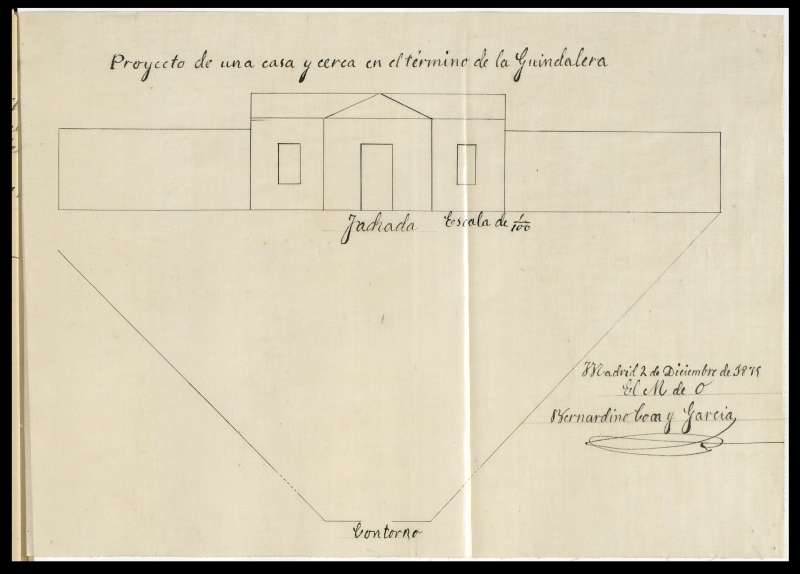 Proyecto de una casa y cerca en el término de la Guindalera
Fachada Escala de 1/100
Madrid 2 de Diciembre de 1875
El M de O
Bernardino y Garcia
Contorno